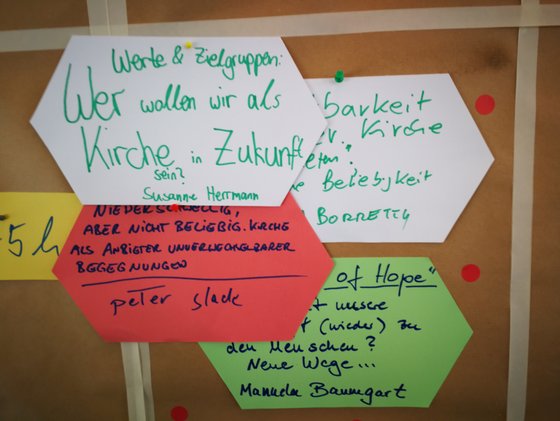 Werte & Zielgruppen:
Wer wollen wir als
Kirche in Zukunft
sein?
Susanne Herrmann
barkeit
Kirche
Beliebigkeit
BORRETTY
NIEDERSCHWELLIG,
ABER NICHT BELIEBIG. KIRCHE
ALS ANBIETER UNVERWECHSELBARER
BEGEGNUNGEN
peter slade
5h
of Hope"
unsere
(wieder) zu
den Menschen?
Neue Wege...
Manuela Baumgart